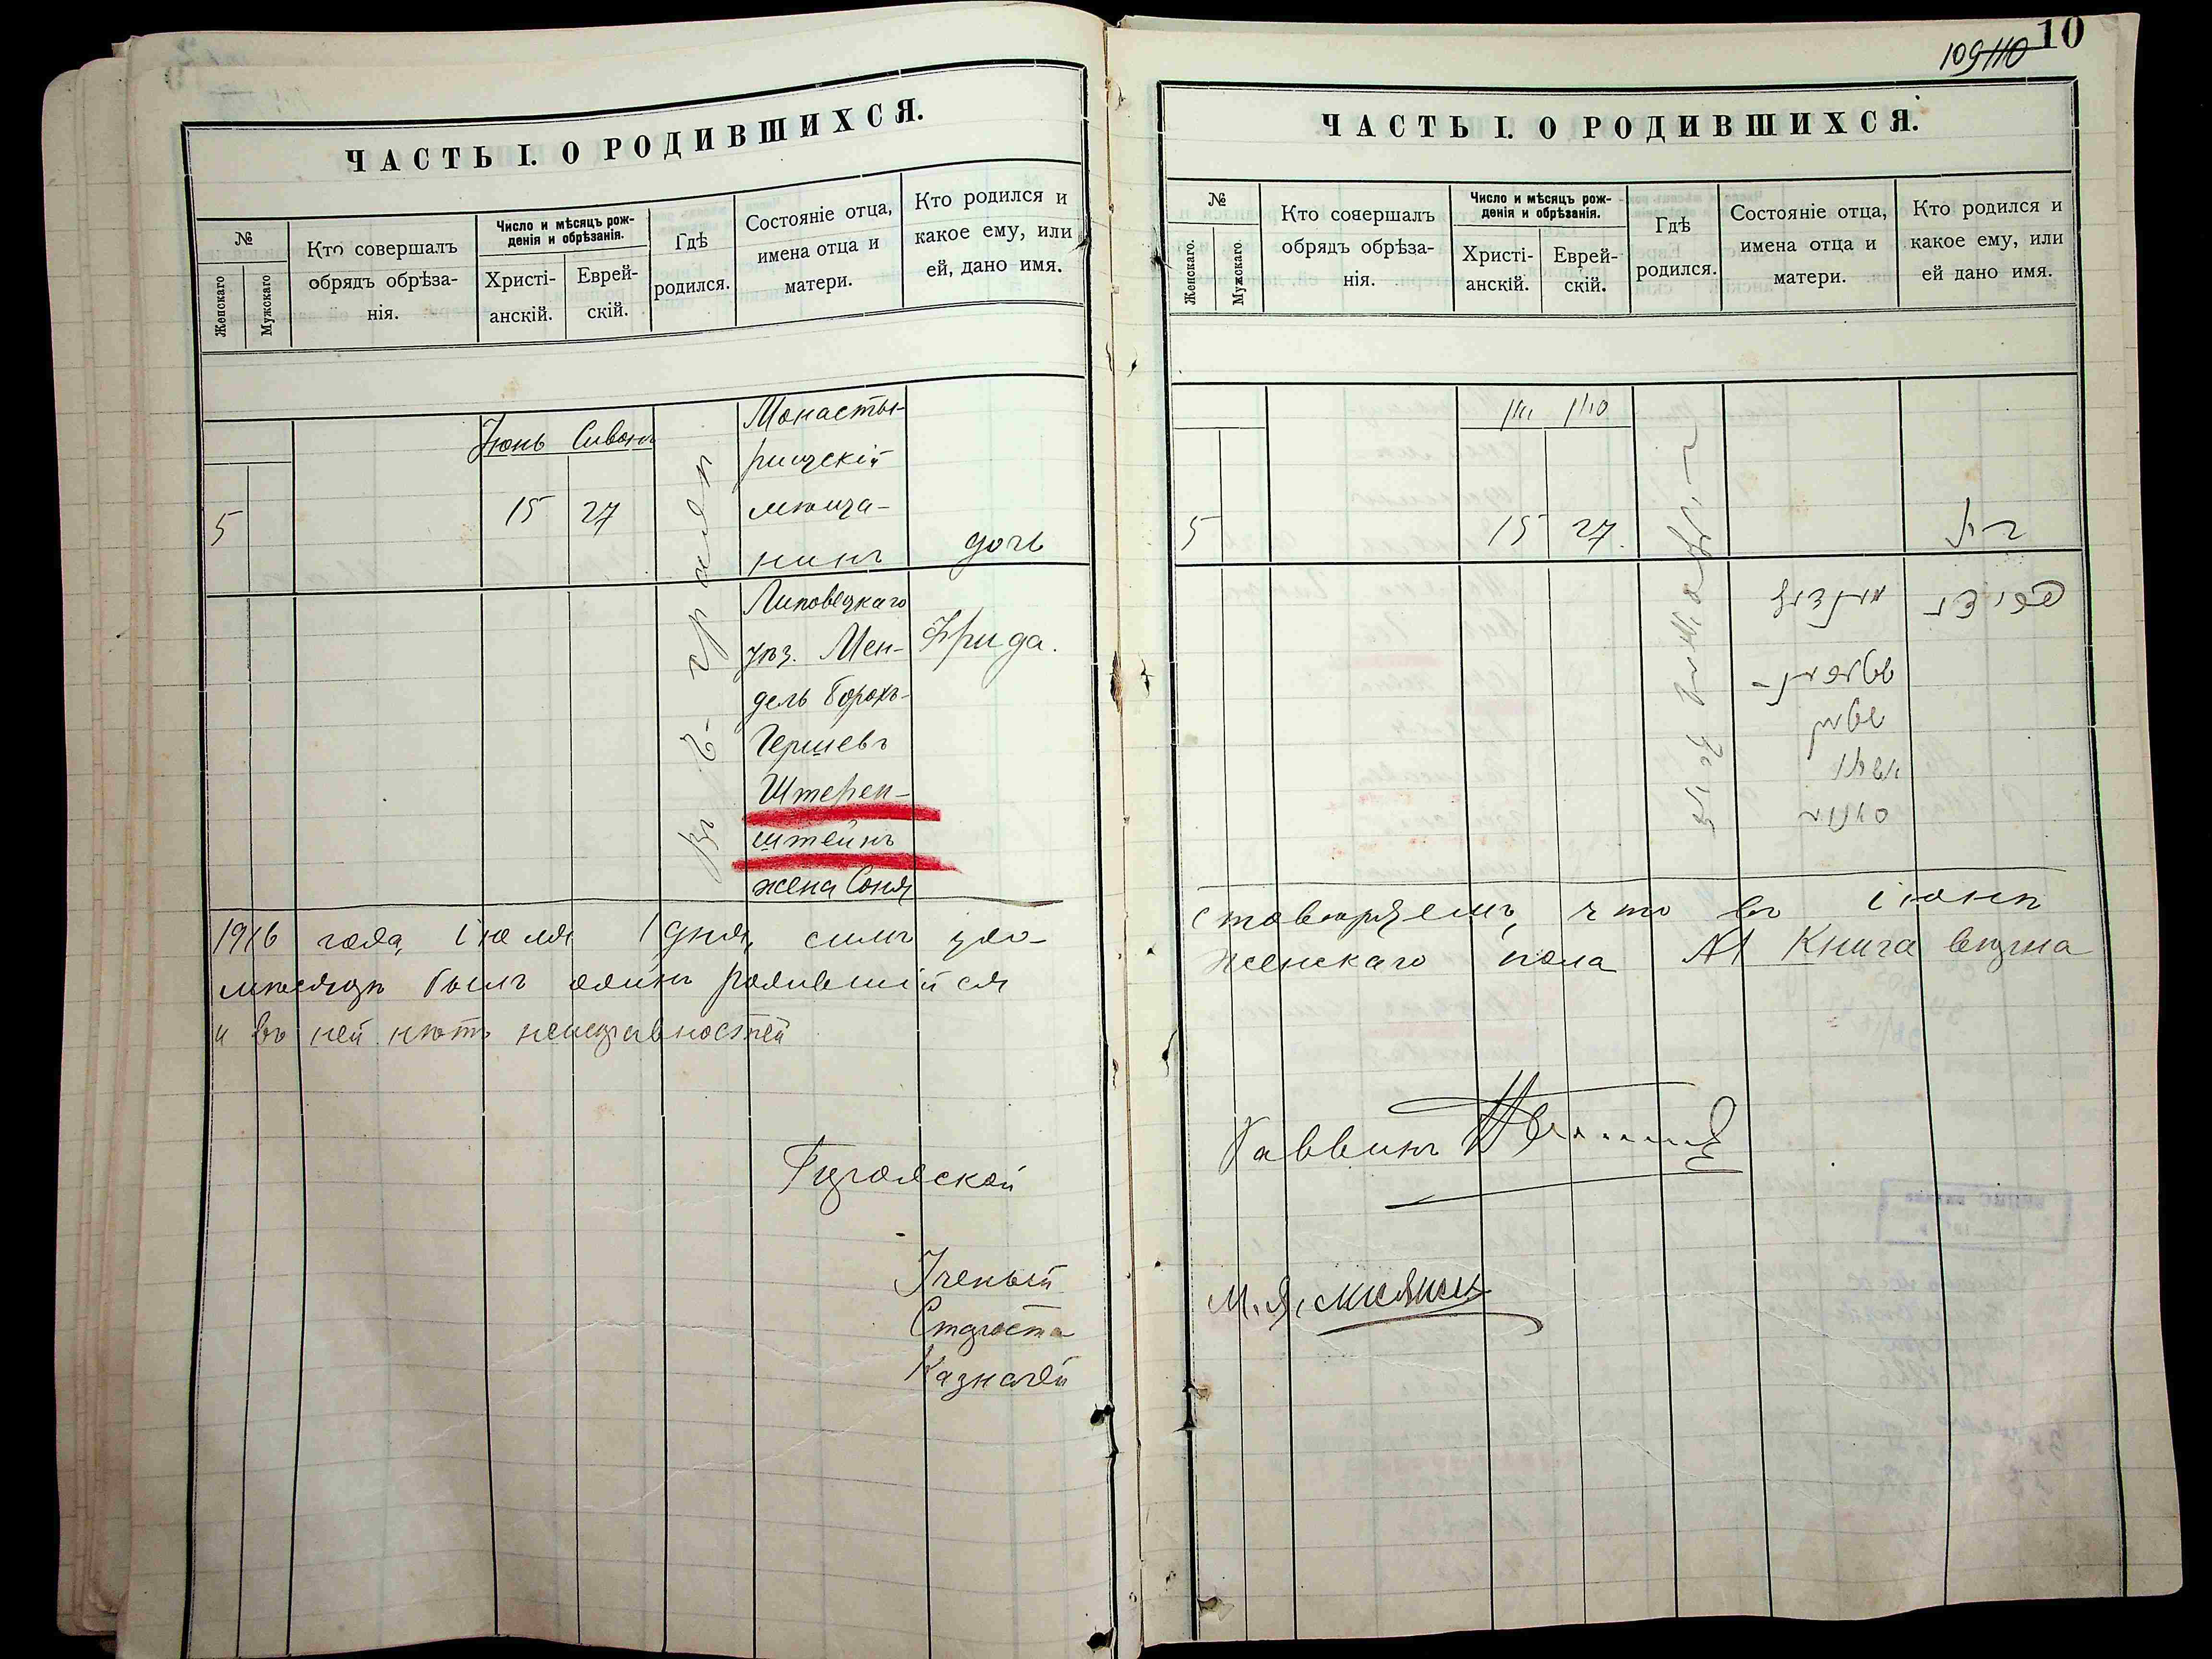 ЧАСТЬ I. О РОДИВШИХСЯ.
№
Женскаго
Мужскаго
Кто совершалъ
обрядъ обрѣза-
нія.
Число и мѣсяцъ рож-
денія и обрѣзанія.
Христі-
анскій.
Еврей-
скій.
Гдѣ
родился.
Состояніе отца,
имена отца и
матери.
Кто родился и
какое ему, или
ей, дано имя.
Іюнь Сиванъ
5
15 27
Монасты-
рищскій
мѣща-
нинъ
Липовецкаго
уѣз. Мен-
дель Борохъ-
Гершевъ
Штерен-
штейнъ
жена Соня
дочь
Фрида.
1916 года, іюля 1 дня, симъ удо-
мѣсяцѣ былъ одинъ родившійся
и въ ней нѣтъ неисправностей
Городской
Ученый
Староста
Казначей
109 110 10
ЧАСТЬ I. О РОДИВШИХСЯ.
№
Женскаго.
Мужскаго.
Кто совершалъ
обрядъ обрѣза-
нія.
Число и мѣсяцъ рож-
денія и обрѣзанія.
Христі-
анскій.
Еврей-
скій.
Гдѣ
родился.
Состояніе отца,
имена отца и
матери.
Кто родился и
какое ему, или
ей дано имя.
יוני סיון
5
15 27.
בת
מענדעל
פרידא
שטערען-
שטיין
אשתו
סאניא
стовѣряемъ, что въ іюнѣ
женскаго пола №1 Книга вѣрна
Раввинъ